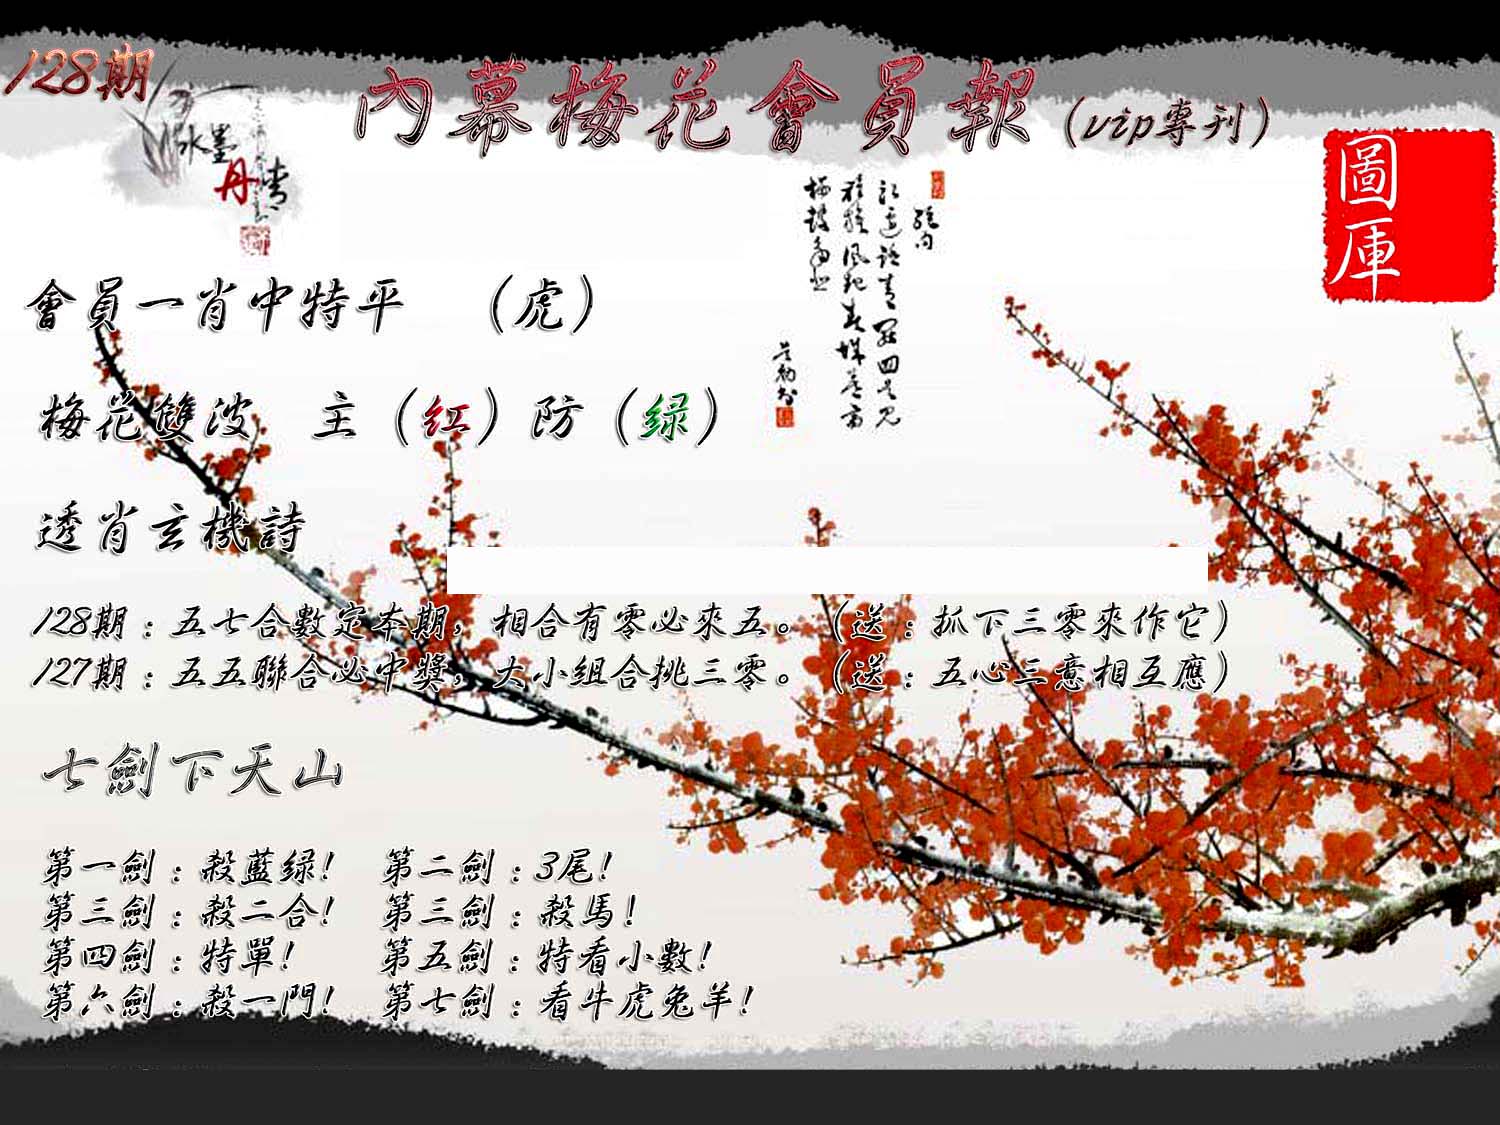 128期
內幕梅花會員報(vip專刊)
水墨
丹青
圖庫
會員一肖中特平 （虎）
梅花雙波 主（红）防（绿）
透肖玄機詩
128期：五七合數定本期，相合有零必來五。（送：抓下三零來作它）
127期：五五聯合必中獎，大小組合挑三零。（送：五心三意相互應）
七劍下天山
第一劍：殺藍绿! 第二劍：3尾!
第三劍：殺二合! 第三劍：殺馬!
第四劍：特單! 第五劍：特看小數!
第六劍：殺一門! 第七劍：看牛虎兔羊!